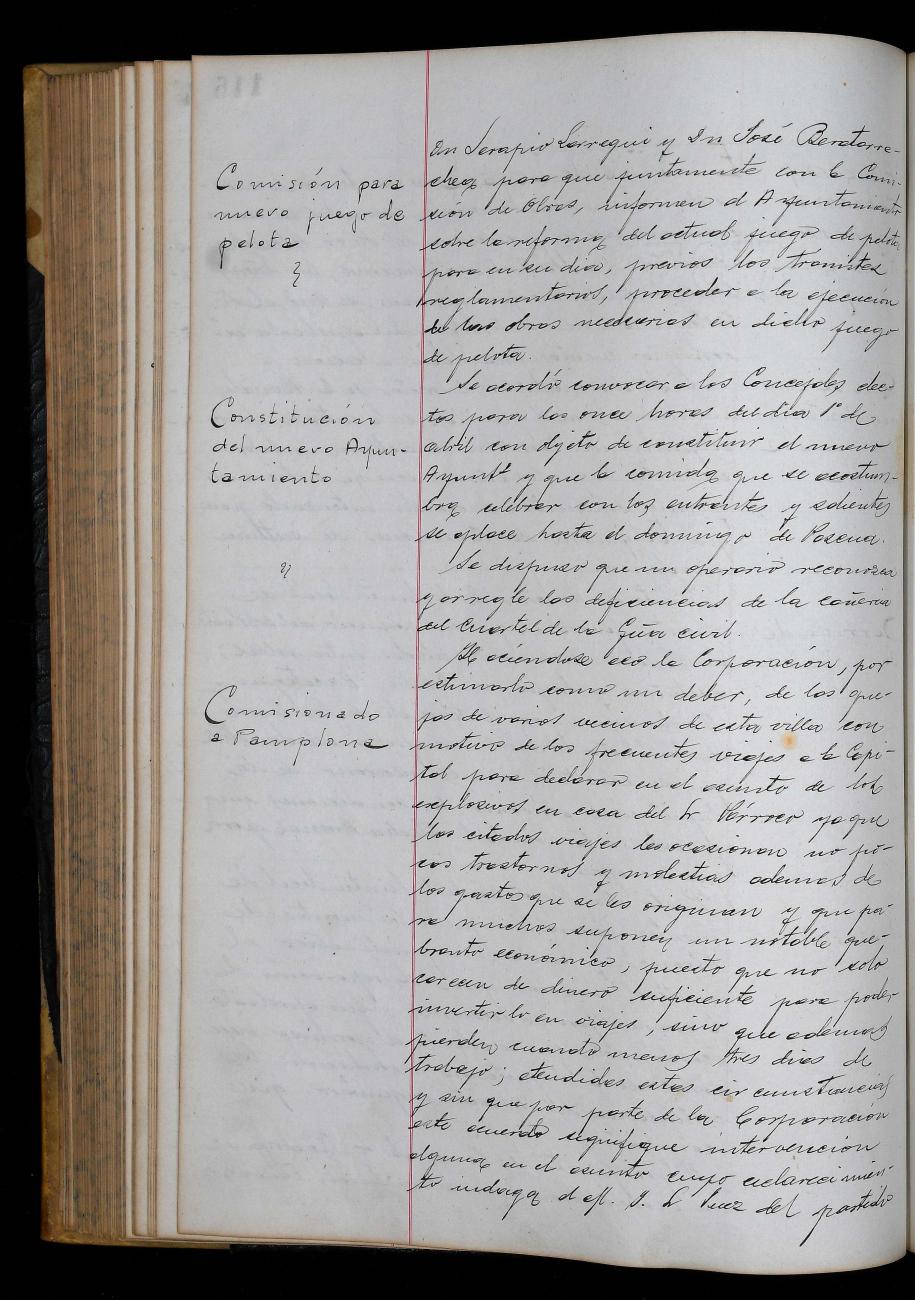 Comisión para
nuevo juego de
pelota
Dn Serapio Larregui y Dn José Beratarre-
chea para que juntamente con la Comi-
sión de Obras, informen al Ayuntamiento
sobre la reforma del actual juego de pelota
para en su dia, previos los tramites
reglamentarios, proceder a la ejecución
de las obras necesarias en dicho juego
de pelota.
Constitución
del nuevo Ayun-
tamiento
Se acordó convocar a los Concejales elec-
tos para las once horas del dia 1º de
abril con objeto de constituir el nuevo
Ayuntº y que la comida que se acostum-
bra celebrar con los entrantes y salientes
se aplace hasta el domingo de Pascua.
Se dispuso que un operario reconozca
y arregle las deficiencias de la cañeria
del Cuartel de la Gña civil.
Comisionado
a Pamplona
Haciéndose eco la Corporación, por
estimarlo como un deber, de las que-
jas de varios vecinos de esta villa con
motivo de los frecuentes viajes a la Capi-
tal para declarar en el asunto de los
explosivos en casa del Sr Párroco ya que
los citados viajes les ocasionan no po-
cos trastornos y molestias ademas de
los gastos que se les originan y que pa-
ra muchos suponen un notable que-
branto económico, puesto que no solo
carecen de dinero suficiente para poder
invertirlo en viajes, sino que ademas
pierden cuando menos tres dias de
trabajo; atendidas estas circunstancias
y sin que por parte de la Corporación
este acuerdo signifique intervención
alguna en el asunto cuyo esclarecimien-
to indaga el Juez del partido